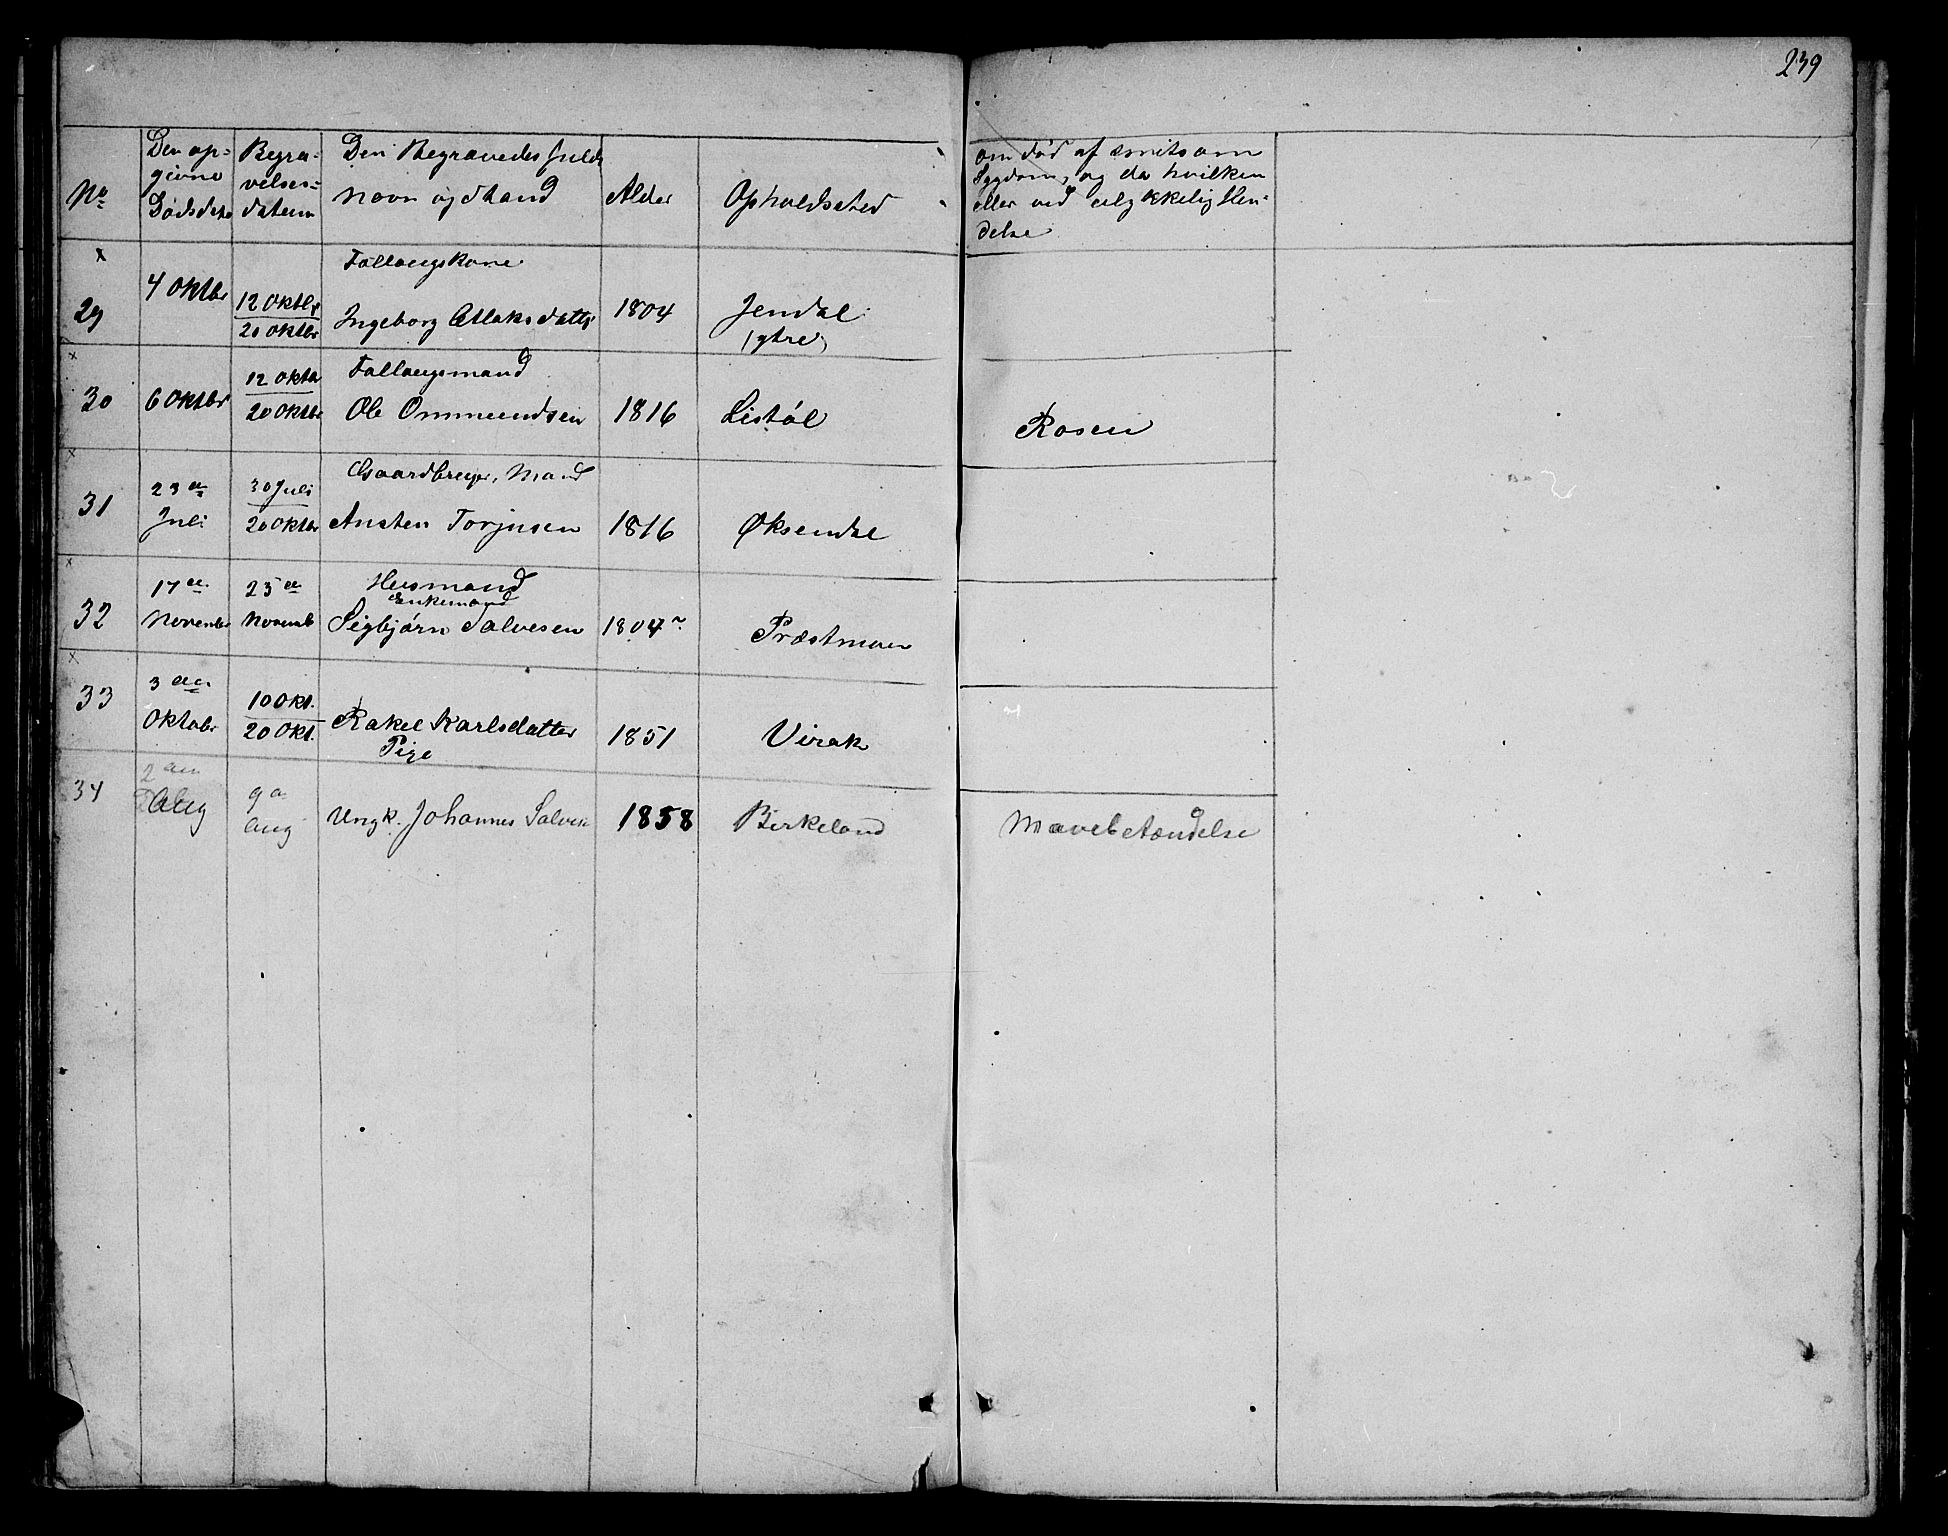 239
No
Den op-
givne
Dødsdato
Begra-
velses-
datum
Den Begravedes fulde
Navn og Stand
Alder
Opholdssted
om død af smitsom
Sygdom, og da hvilken
eller ved ulykkelig Hen-
delse
x
29
4 Oktbr
12 Oktbr
20 Oktbr
Follaugskone
Ingeborg Atlaksdatter
1804
Jendal
(ytre)
x
30
6 Oktbr
12 Oktb
20 Oktbr
Follaugsmand
Ole Ommundsen
1816
Listøl
Rosen
x
31
23de
Juli
30 Juli
20 Oktbr
Gaardbruger, Mand
Ansten Torjusen
1816
Øksendal
x
32
17de
November
25de
Novemb
Husmand
Enkemand
Sigbjørn Salvesen
1804
Præstmoen
x
33
3die
Oktobr
10 Okt.
20 Okt.
Rakel Karlsdatter
Pige
1851
Virak
34
2den
Aug
9de
Aug
Ungk. Johannes Salvesen
1858
Birkeland
Mavebetændelse